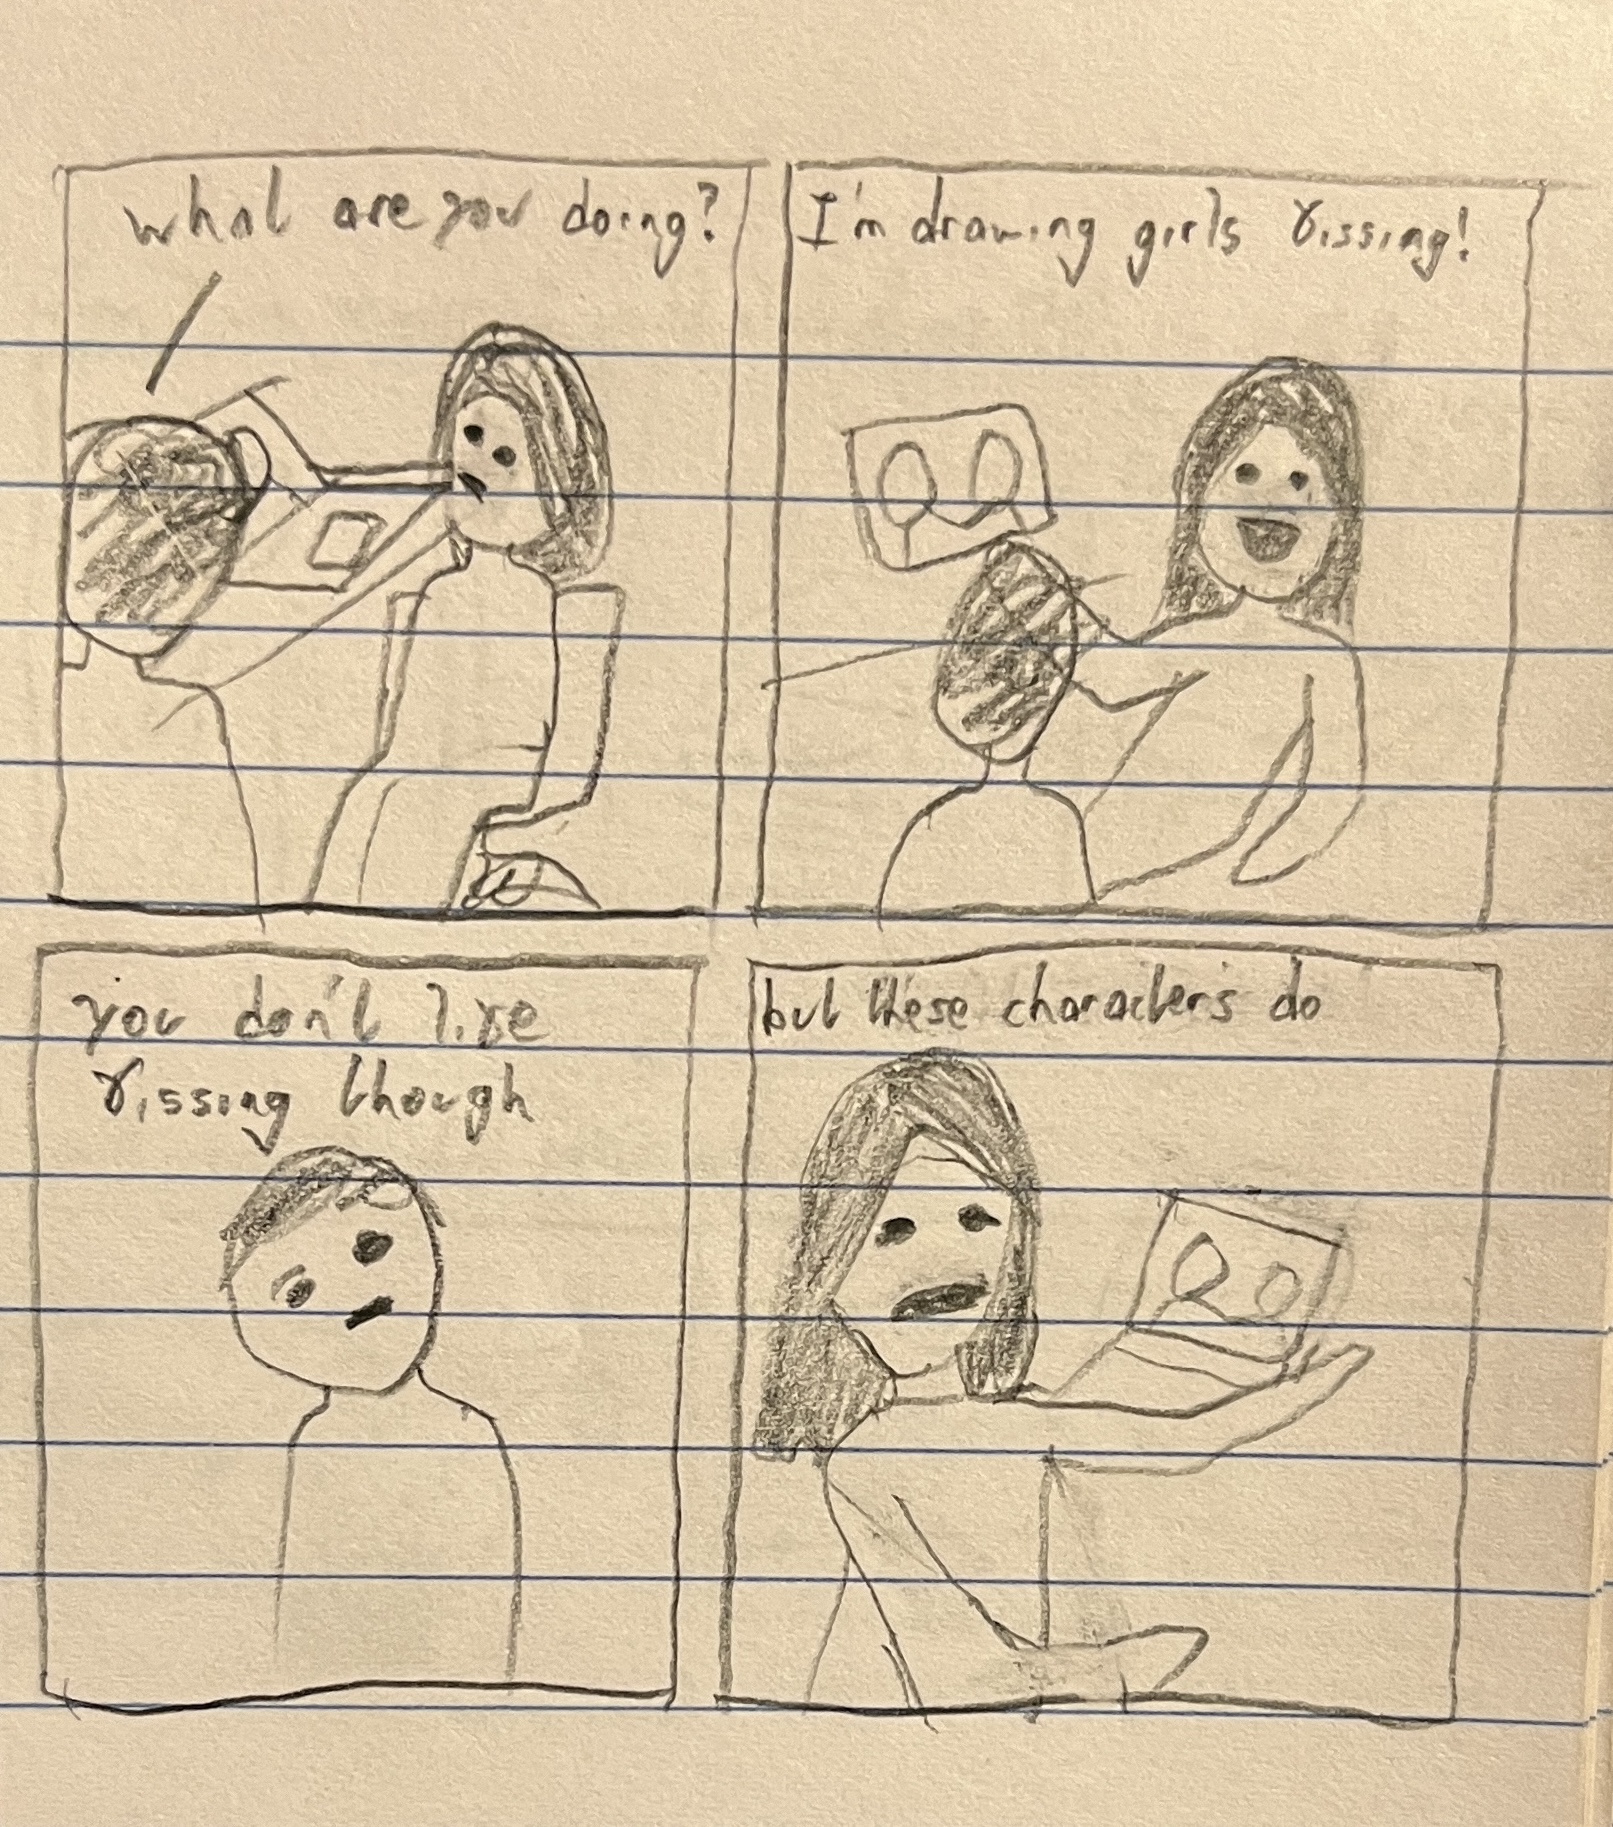 what are you doing?
I'm drawing girls kissing!
you don't like
kissing though
but these characters do